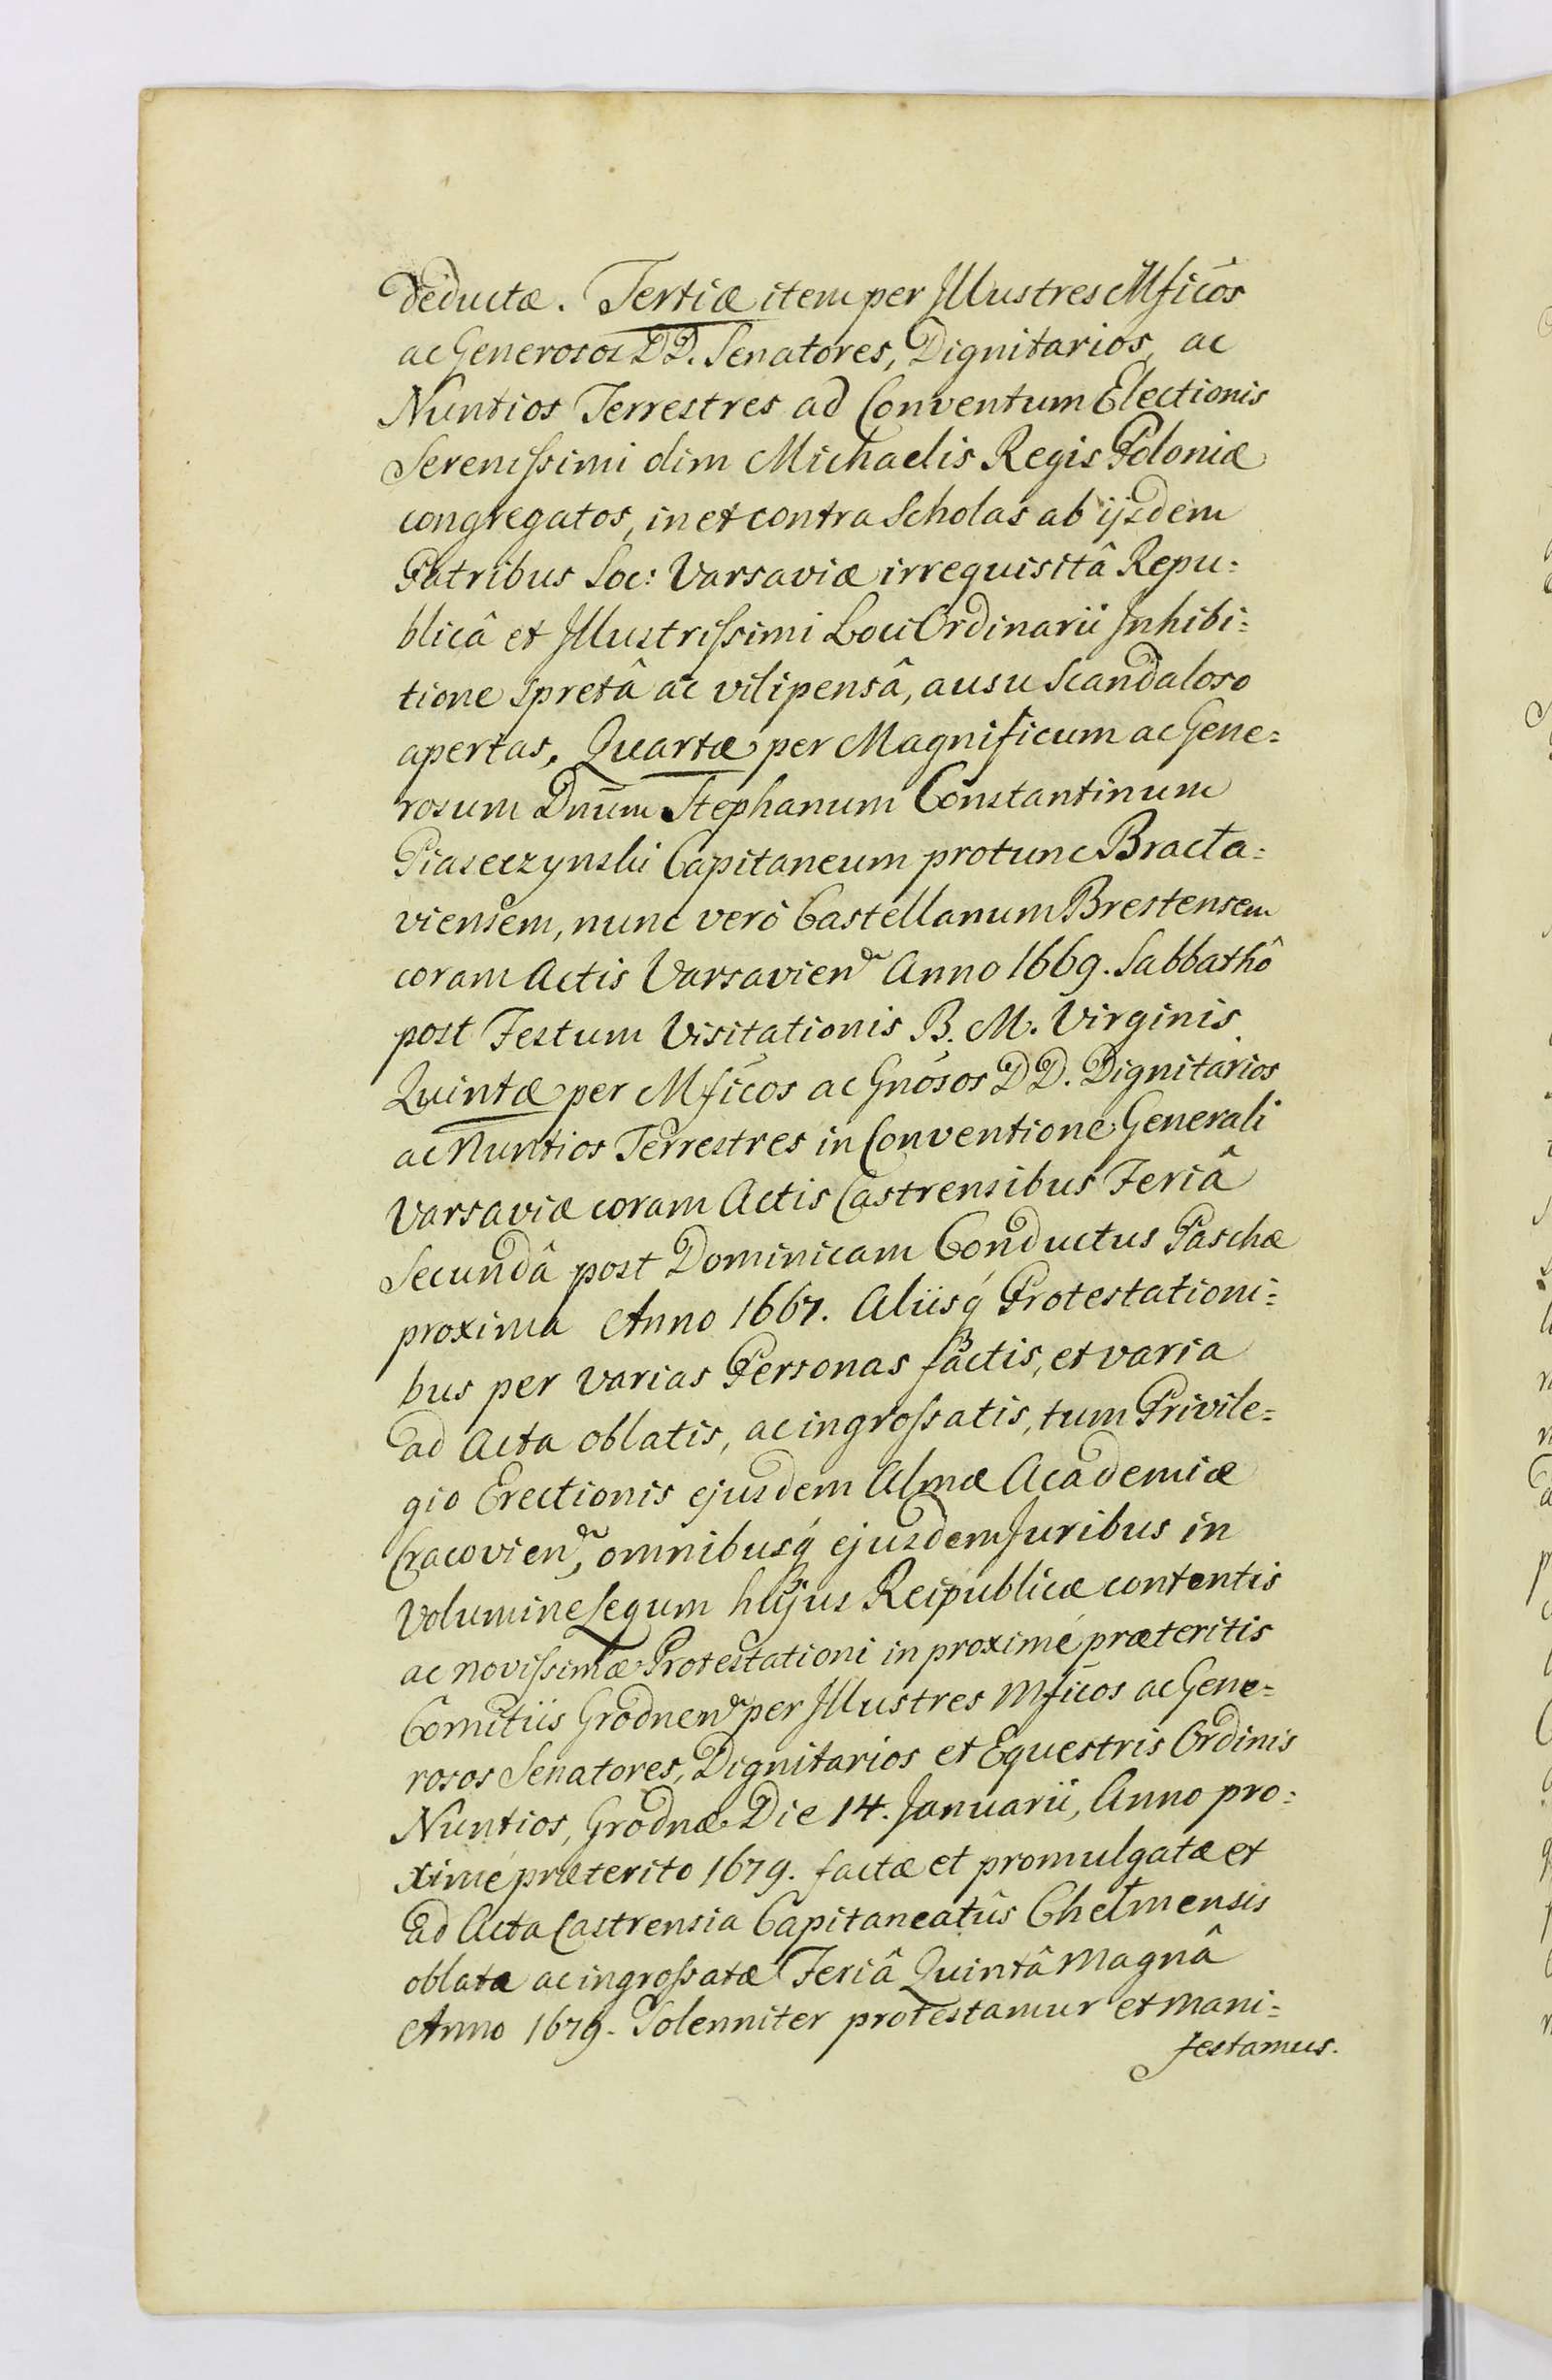 deductæ. Tertiæ item per Illustres Mficos
ac Generosos DD. Senatores, Dignitarios, ac
Nuntios Terrestres ad Conventum Electionis
Serenissimi olim Michaelis Regis Poloniæ
congregatos, in et contra Scholas ab ijsdem
Patribus Soc: Varsaviæ irrequisitâ Repu:
blicâ et Illustrissimi Loci Ordinarii Inhibi:
tione spretâ ac vilipensâ, ausu Scandaloso
apertas. Quartæ per Magnificum ac Gene:
rosum Dnum Stephanum Constantinum
Piaseczynski Capitaneum protunc Bracta:
viensem, nunc verò Castellanum Brestensem
coram Actis Varsavien Anno 1669. Sabbathô
post Festum Visitationis B. M. Virginis
Quintæ per Mficos ac Gnosos DD. Dignitarios
ac Nuntios Terrestres in Conventione Generali
Varsaviæ coram Actis Castrensibus Feriâ
Secundâ post Dominicam Conductus Paschæ
proxima Anno 1667. Aliisq́ Protestationi:
bus per varias Personas factis, et varia
ad Acta oblatis, ac ingrossatis, tum Privile:
gio Erectionis ejusdem Almæ Academiæ
Cracovien, omnibusq́ ejusdem Juribus in
Volumine Legum hujus Reipublicæ contentis
ac novissimæ Protestationi in proximè præteritis
Comitiis Grodnen per Illustres Mficos ac Gene:
rosos Senatores, Dignitarios et Equestris Ordinis
Nuntios, Grodnæ Die 14. Januarii, Anno pro:
ximè præterito 1679. factæ et promulgatæ et
ad Acta Castrensia Capitaneatûs Chełmensis
oblata ac ingrossatæ Feriâ Quintâ Magnâ
Anno 1679. Solenniter protestamur et mani:
festamus.